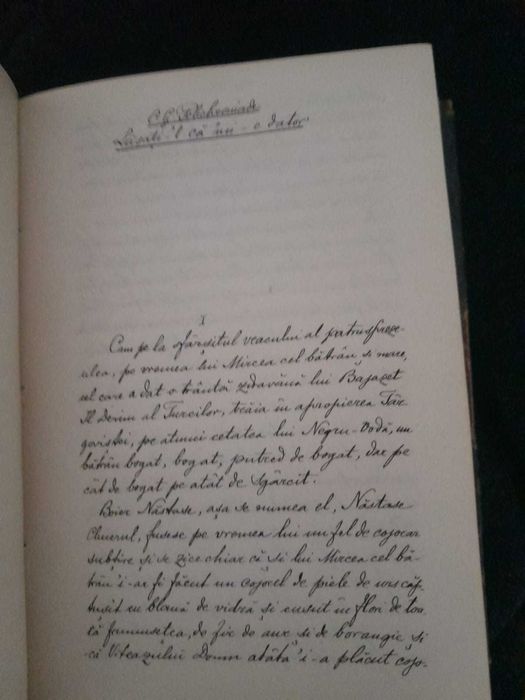 Lăsați 'l că mi-e dator
I
Cam pe la sfârșitul veacului al patruspreze-
celea, pe vremea lui Mircea cel bătrân și mare,
ul care a dat o trântă zdravănă lui Bajazet
Il Derim al Turcilor, trăia în apropierea Târ
goviștei, pe atunci cetatea lui Negru-Vodă, un
bătrân bogat, bogat, putred de bogat, dar pe
cât de bogat pe atât de sgârcit.
Boier Năstase, așa se numea el, Năstase
Clucerul, fusese pe vremea lui un fel de cojocar
subțire și se zice chiar că și lui Mircea cel bă-
trân 'i-ar fi făcut un cojocel de piele de urs căp-
tușit cu blană de vidră și cusut în flori de toa
tă frumusețea, de fir de aur și de borangic și
că Viteazului Domn atâta 'i-a plăcut cojo-